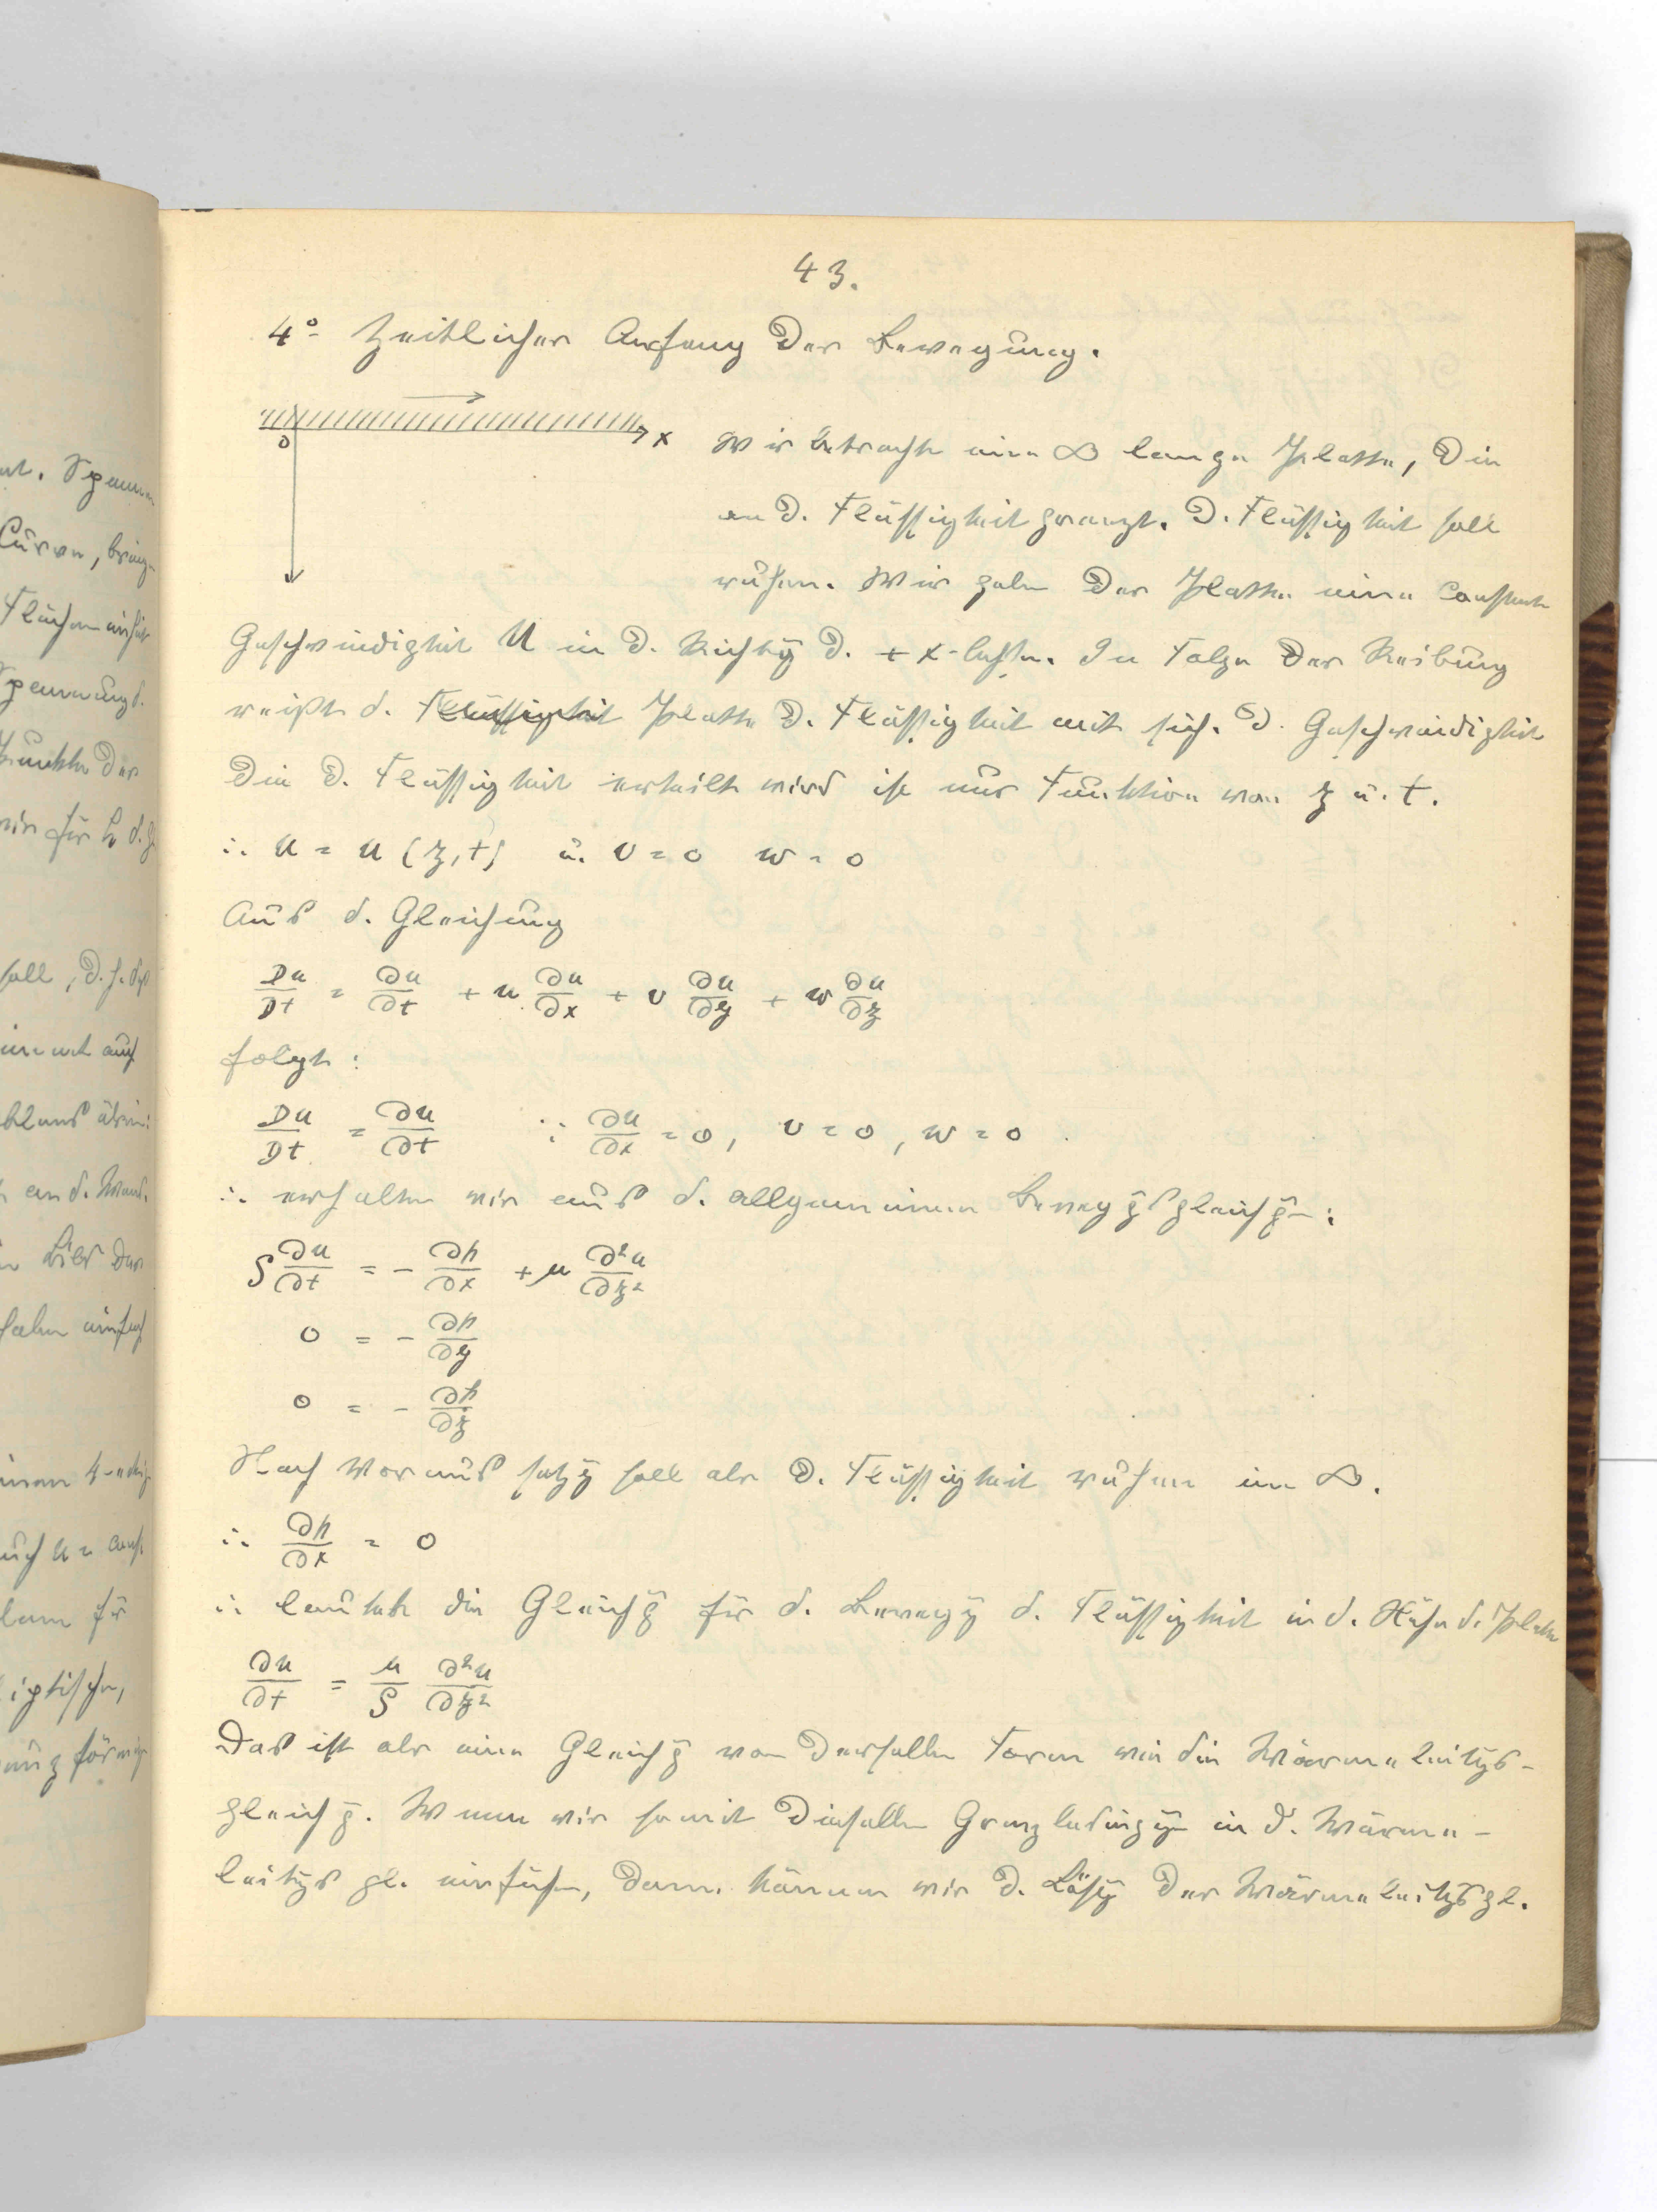 43.
4° Zeitlicher Anfang der Bewegung.
0
x
Wir betrachte eine ∞ lange Platte, die
an d. Flüssigkeit grenzt. D. Flüssigkeit soll
ruhen. Wir geben der Platte eine constante
Geschwindigkeit U in d. Richtg d. + x-Achse. In Folge der Reibung
reißt d. Flüssigkeit Platte d. Flüssigkeit mit sich. D. Geschwindigkeit
die d. Flüssigkeit erteilt wird ist nur Funktion von z u. t.
∴ u = u (z, t) u. v = 0 w = 0
Aus d. Gleichung
Du/Dt = ∂u/∂t + u ∂u/∂x + v ∂u/∂y + w ∂u/∂z
folgt:
Du/Dt = ∂u/∂t ∵ ∂u/∂x = 0, v = 0, w = 0
∴ erhalten wir aus d. allgemeinen Bewegg̅sgleichg̅-:
ρ ∂u/∂t = - ∂p/∂x + μ ∂²u/∂z²
0 = - ∂p/∂y
0 = - ∂p/∂z
Nach Voraussetzg̅ soll aber d. Flüssigkeit ruhen im ∞.
∴ ∂p/∂x = 0
∴ lautet die Gleichg̅ für d. Bewegg̅ d. Flüssigkeit in d. Nähe d. Platte
∂u/∂t = μ/ρ ∂²u/∂z²
Das ist aber eine Gleichg̅ von derselben Form wie die Wärmeleitg̅s-
gleichg̅. Wenn wir somit dieselben Grenzbedingg̅- in d. Wärme-
leitg̅s gl. einführen, dann können wir d. Lösg̅ der Wärmeleitg̅sgl.
ut. Spannun
Curven, bring-
Flächen
Spannungs.
Punkte der
wir für
soll, d.h. daß
auf
an d. Wand.
Bild der
haben einfach
einen 4-eckig
auch u = const
iptischen,
förmig